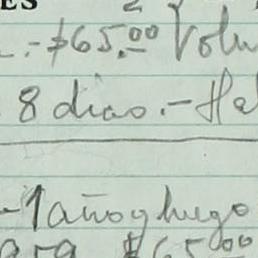 ES
.-$65.00 Volu
8 dias.-Ha
-1 año y luego
$65.00